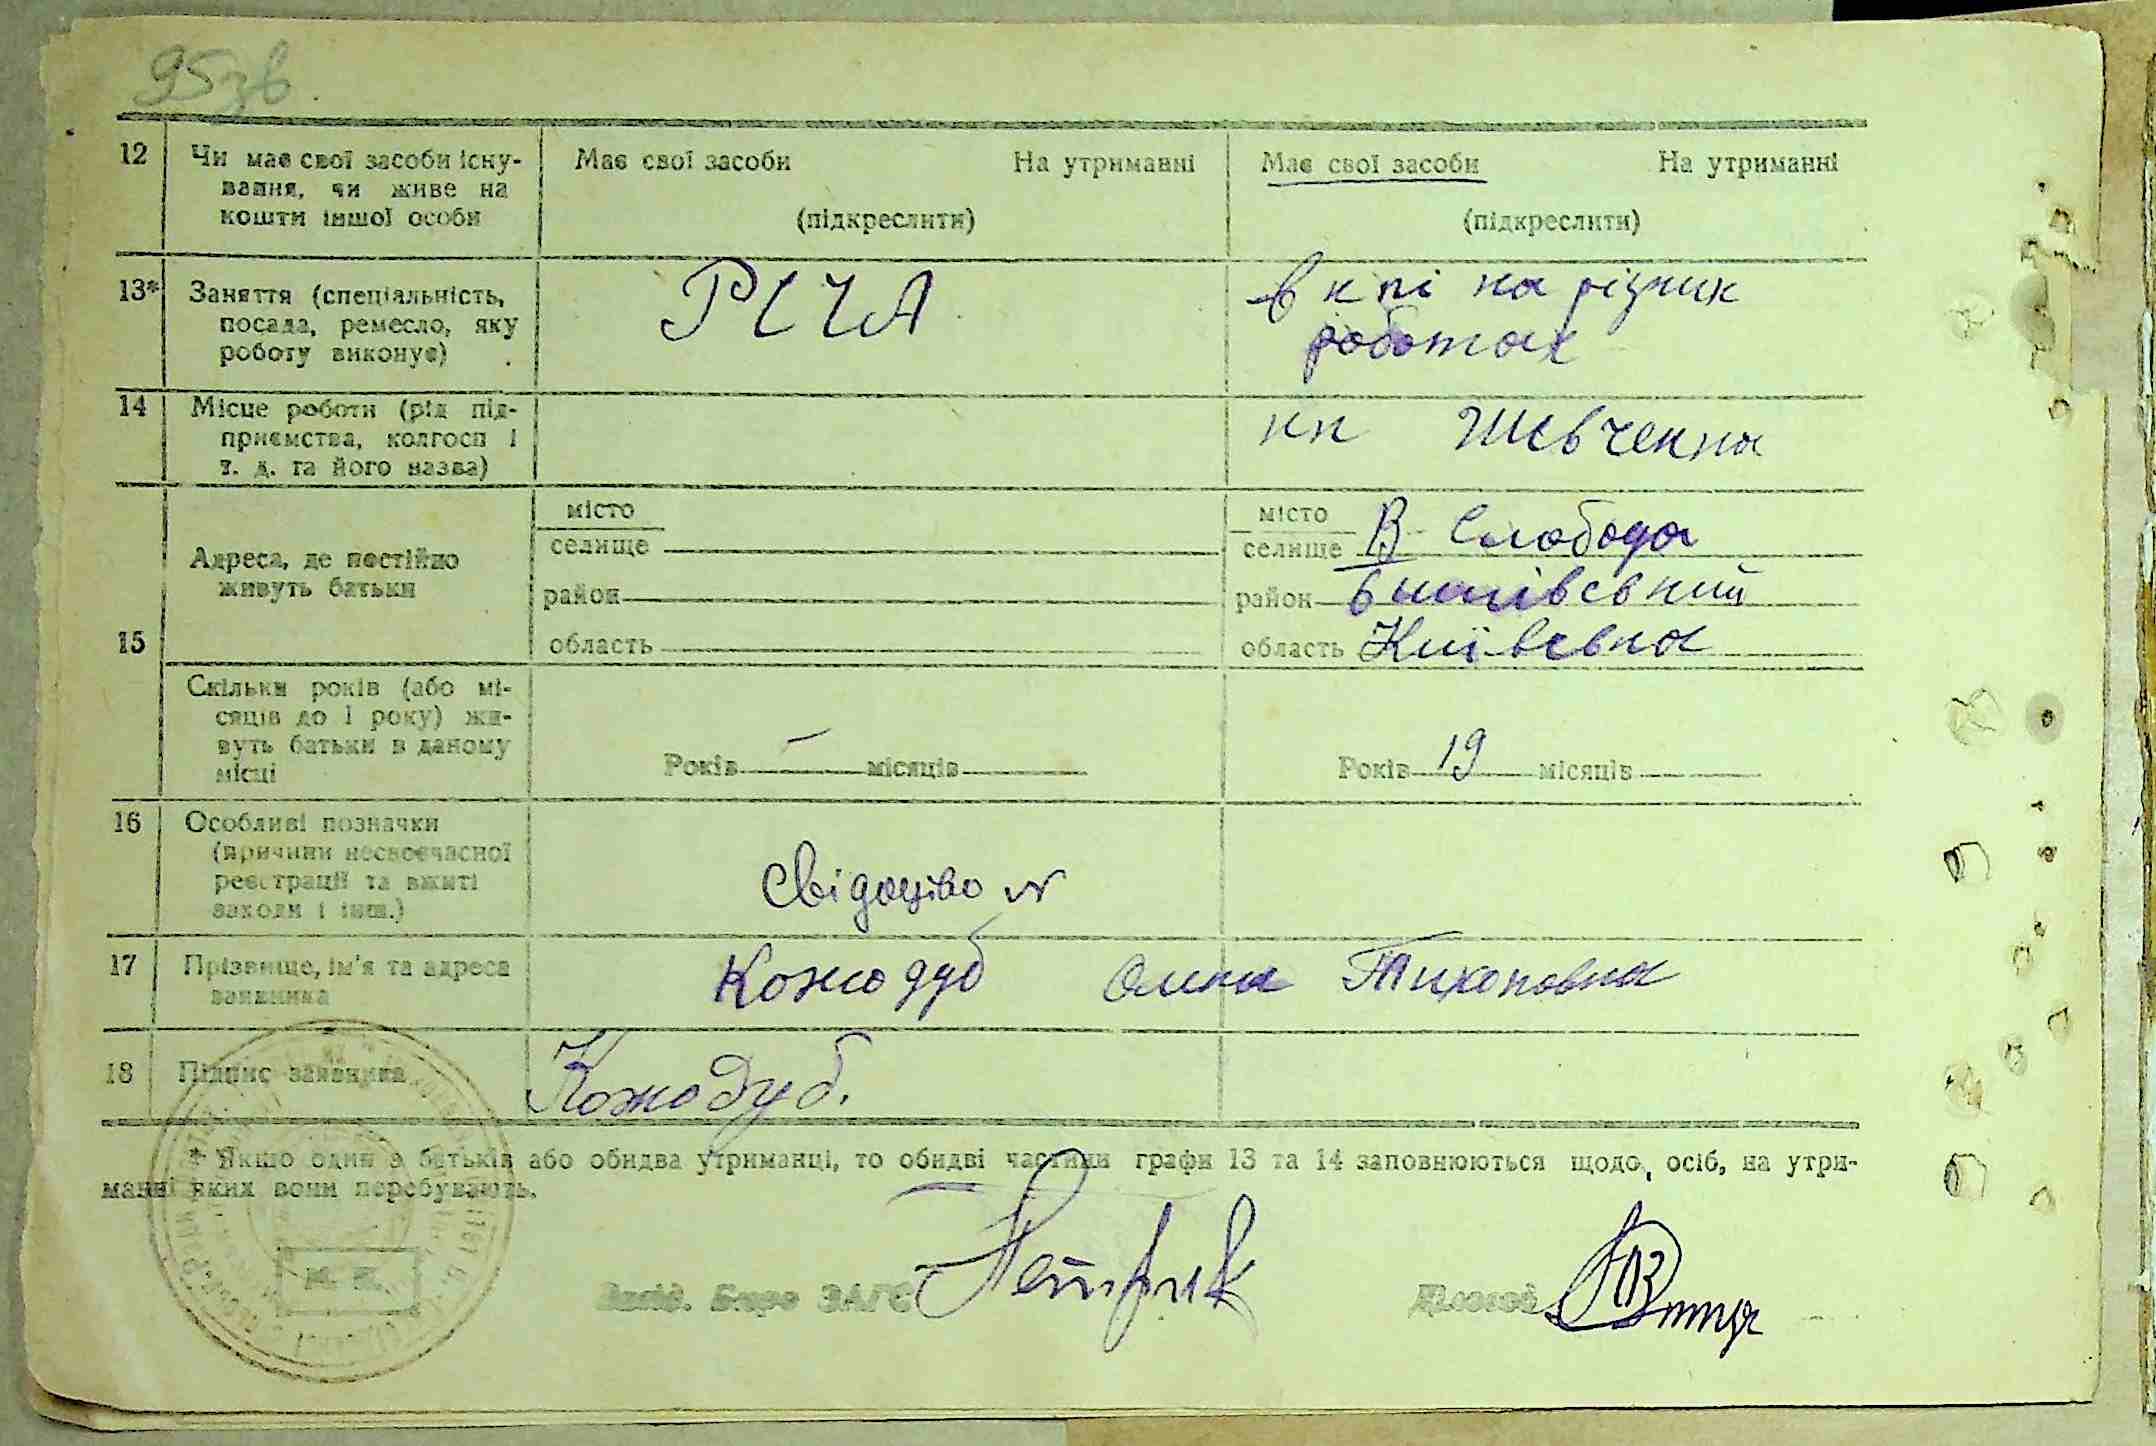 95зв.
12 Чи має свої засоби існу- Має свої засоби На утриманні Має свої засоби На утриманні
вання, чи живе на
кошти іншої особи (підкреслити) (підкреслити)
13* Заняття (спеціальність, РСЧА в кпі на різник
посада, ремесло, яку
роботу виконує) роботах
14 Місце роботи (рід під-
приємства, колгосп і кп Шевченка
т. д. та його назва)
місто місто
селище селище В Слобода
Адреса, де постійно
живуть батьки район район
15 область область Київська
Скільки років (або мі-
сяців до 1 року) жи-
вуть батьки в даному
місці Років – місяців Років 19 місяців
16 Особливі позначки
(причини несвоєчасної
реєстрації та вжиті Свідоцтво №
заходи і інш.)
17 Прізвище, ім'я та адреса Кожодуб Тихоновна
заявника
18 Підпис заявника Кожодуб.
* Якщо один з батьків або обидва утриманці, то обидві частини графи 13 та 14 заповнюються щодо осіб, на утри-
манні яких вони перебувають.
М. П. Завід. Бюро ЗАГС Петрик Діловод